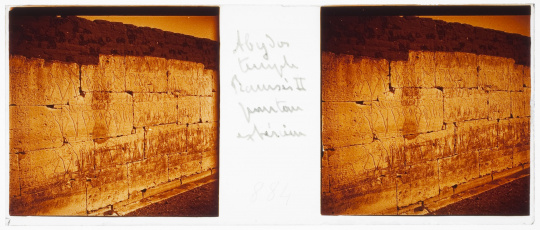 Abydos
temple
Ramsès II
extérieur
884